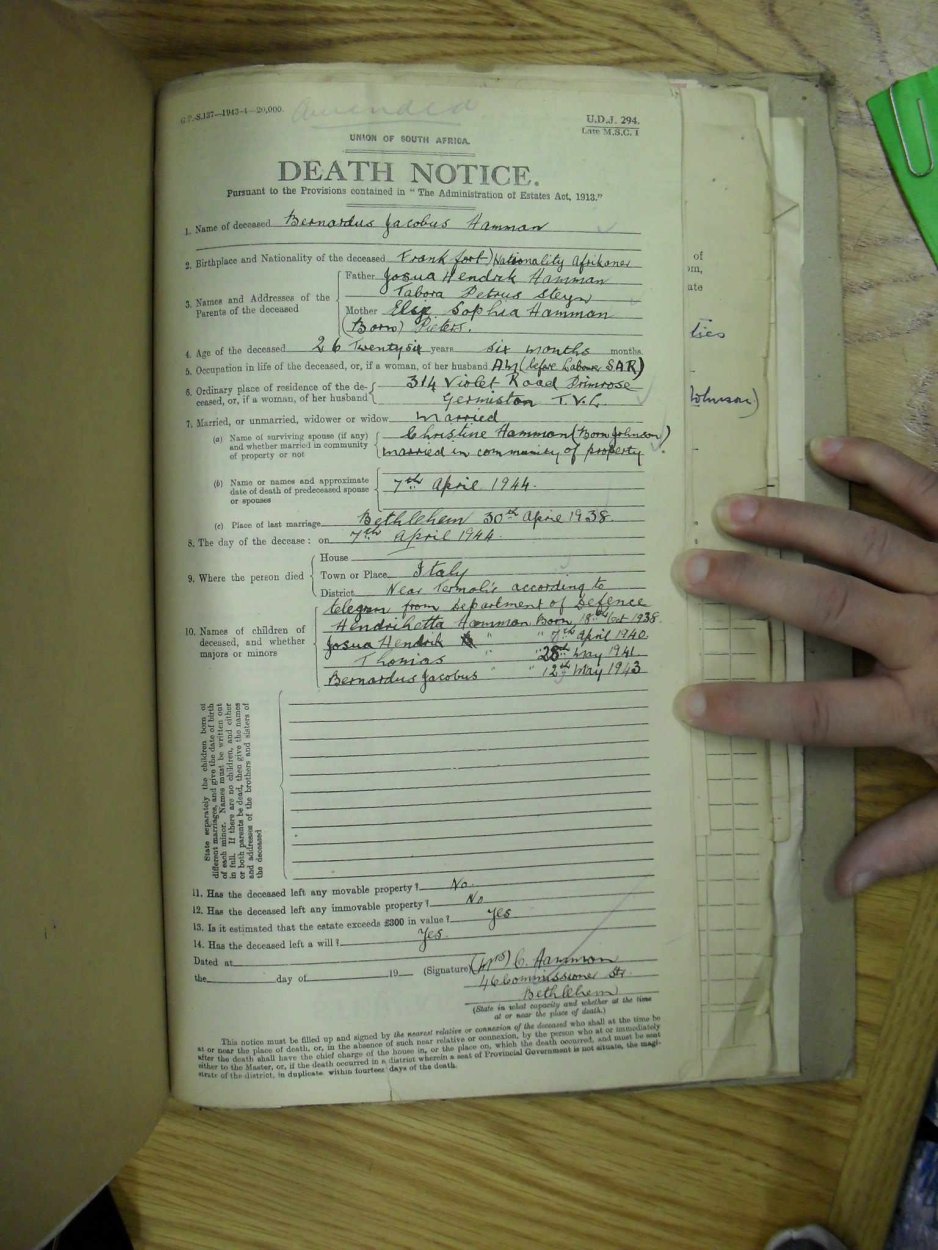 G.P.-S.137—1943-4—20,000.
amended
U.D.J. 294.
Late M.S.C. 1
UNION OF SOUTH AFRICA.
DEATH NOTICE.
Pursuant to the Provisions contained in " The Administration of Estates Act, 1913."
1. Name of deceased Bernardus Jacobus Hamman
2. Birthplace and Nationality of the deceased Frankfort) Nationality Afrikaner
3. Names and Addresses of the Parents of the deceased
Father Josua Hendrik Hamman
Tabora Petrus Steyn
Mother Elsje Sophia Hamman
(Born) Pieters.
4. Age of the deceased 26 Twenty six years six months months
5. Occupation in life of the deceased, or, if a woman, of her husband (before Labourer SAR)
6. Ordinary place of residence of the de-
ceased, or, if a woman, of her husband
314 Violet Road Primrose
Germiston T.V.L.
7. Married, or unmarried, widower or widow Married
(a) Name of surviving spouse (if any)
and whether married in community
of property or not
Christine Hamman (Born Johnson)
married in community of property
(b) Name or names and approximate
date of death of predeceased spouse
or spouses
7th April 1944.
(c) Place of last marriage Bethlehem 30th April 1938.
8. The day of the decease: on 7th April 1944.
9. Where the person died
House
Town or Place Italy
District Near Termolis according to
telegram from Department of Defence
10. Names of children of
deceased, and whether
majors or minors
Hendrihetta Hamman Born 18th Oct 1938.
Josua Hendrik " " 7th April 1940
Thomas " " 28th May 1941
Bernardus Jacobus " " 12th May 1943
State separately the children born of
different marriages, and give the date of birth
of each minor. Names must be written out
in full. If there are no children, and either
or both parents be dead, then give the names
and addresses of the brothers and sisters of
the deceased
11. Has the deceased left any movable property? No.
12. Has the deceased left any immovable property? No
13. Is it estimated that the estate exceeds £300 in value? Yes
14. Has the deceased left a will? Yes.
Dated at
the day of 19 (Signature) (Mrs) C. Hamman
46 Commissioner Str.
Bethlehem
(State in what capacity and whether at the time
at or near the place of death.)
This notice must be filled up and signed by the nearest relative or connexion of the deceased who shall at the time be
at or near the place of death, or, in the absence of such near relative or connexion, by the person who at or immediately
after the death shall have the chief charge of the house in, or the place on, which the death occurred, and must be sent
either to the Master, or, if the death occurred in a district wherein a seat of Provincial Government is not situate, the magi-
strate of the district, in duplicate within fourteen days of the death.
of
om,
ate
ties
Johnson)